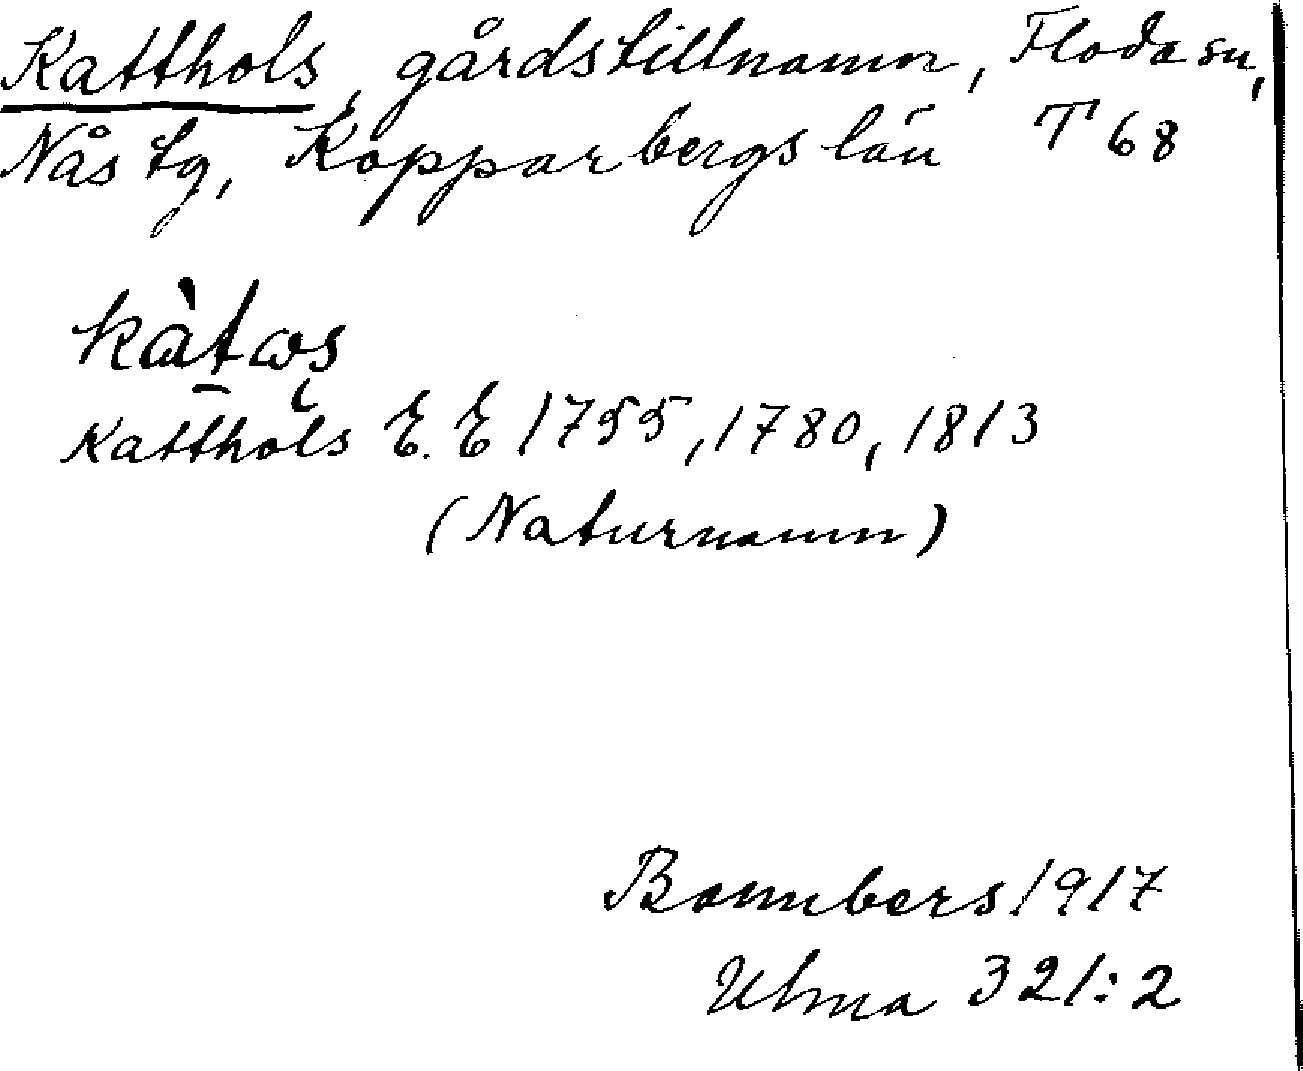 Katthols, gårdstillnamn, Floda sn,
Nås tg, Kopparbergs län T 68
Katthols E. E 1755, 1780, 1813
(Naturnamn)
1917
Ulma 321:2